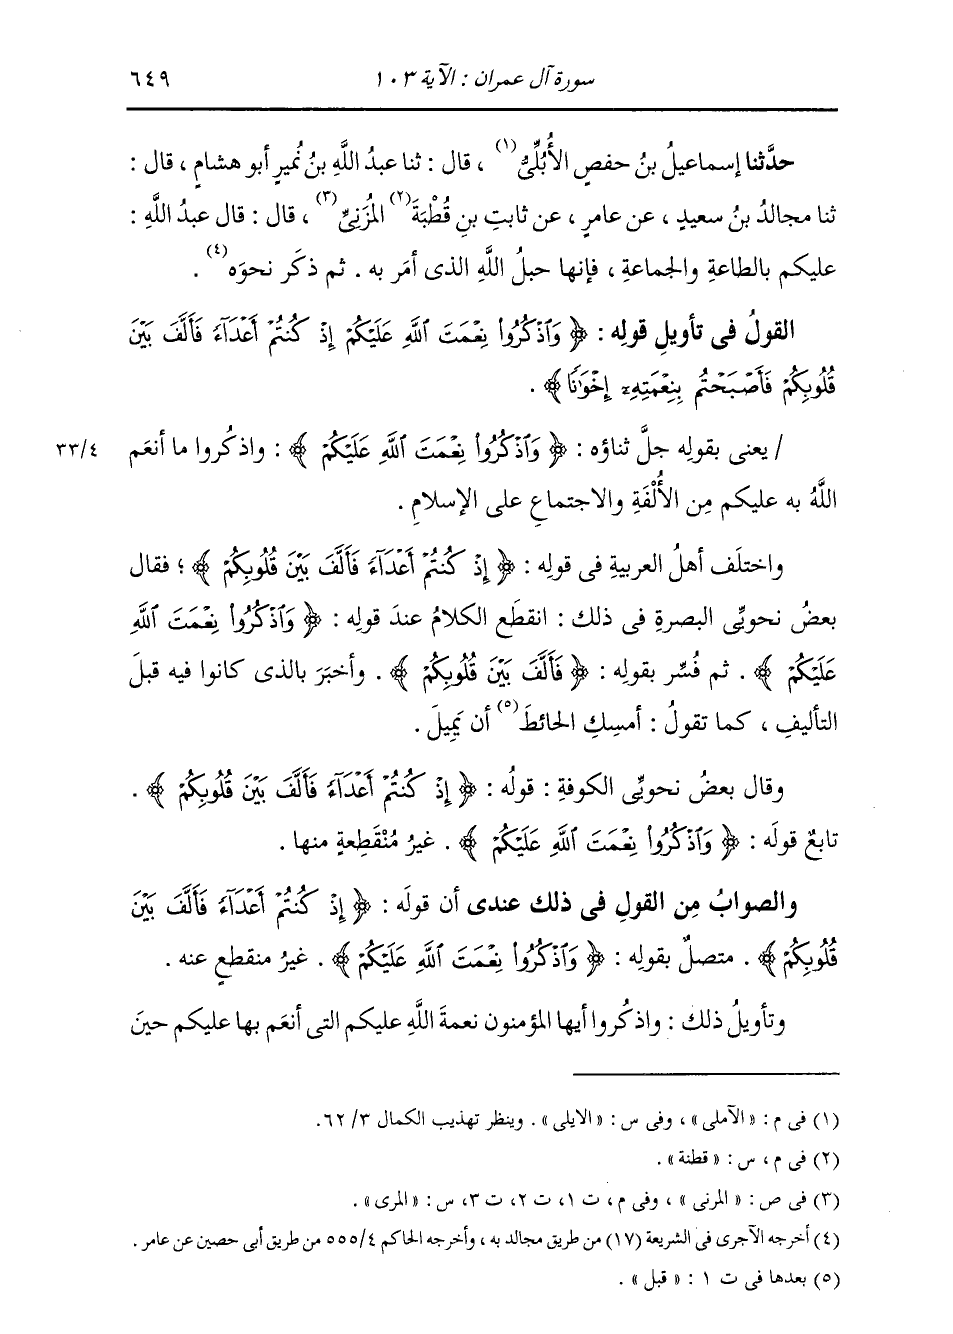 سورة آل عمران : الآية ١٠٣ ٦٤٩
حدَّثنا إسماعيلُ بنُ حفصٍ الأُبُلِّيُّ(١) ، قال : ثنا عبدُ اللَّهِ بنُ نُميرٍ أبو هشامٍ ، قال :
ثنا مجالدُ بنُ سعيدٍ ، عن عامرٍ ، عن ثابتِ بنِ قُطْبَةَ(٢) المُزَنِيِّ(٣) ، قال : قال عبدُ اللَّهِ :
عليكم بالطاعةِ والجماعةِ ، فإنها حبلُ اللَّهِ الذى أمَر به . ثم ذكَر نحوَه(٤) .
القولُ فى تأويلِ قولِه : ﴿ وَٱذْكُرُوا۟ نِعْمَتَ ٱللَّهِ عَلَيْكُمْ إِذْ كُنتُمْ أَعْدَآءً فَأَلَّفَ بَيْنَ
قُلُوبِكُمْ فَأَصْبَحْتُم بِنِعْمَتِهِۦ إِخْوَٰنًا ﴾ .
/ يعنى بقولِه جلَّ ثناؤه : ﴿ وَٱذْكُرُوا۟ نِعْمَتَ ٱللَّهِ عَلَيْكُمْ ﴾ : واذكُروا ما أنعَم ٣٣/٤
اللَّهُ به عليكم مِن الأُلْفَةِ والاجتماعِ على الإسلامِ .
واختلَف أهلُ العربيةِ فى قولِه : ﴿ إِذْ كُنتُمْ أَعْدَآءً فَأَلَّفَ بَيْنَ قُلُوبِكُمْ ﴾ ؛ فقال
بعضُ نحويِّى البصرةِ فى ذلك : انقطَع الكلامُ عندَ قولِه : ﴿ وَٱذْكُرُوا۟ نِعْمَتَ ٱللَّهِ
عَلَيْكُمْ ﴾ . ثم فُسِّر بقولِه : ﴿ فَأَلَّفَ بَيْنَ قُلُوبِكُمْ ﴾ . وأخبَرَ بالذى كانوا فيه قبلَ
التأليفِ ، كما تقولُ : أمسِكِ الحائطَ(٥) أن يَمِيلَ .
وقال بعضُ نحويِّى الكوفةِ : قولُه : ﴿ إِذْ كُنتُمْ أَعْدَآءً فَأَلَّفَ بَيْنَ قُلُوبِكُمْ ﴾ .
تابعٌ قولَه : ﴿ وَٱذْكُرُوا۟ نِعْمَتَ ٱللَّهِ عَلَيْكُمْ ﴾ . غيرُ مُنْقَطِعةٍ منها .
والصوابُ مِن القولِ فى ذلك عندى أن قولَه : ﴿ إِذْ كُنتُمْ أَعْدَآءً فَأَلَّفَ بَيْنَ
قُلُوبِكُمْ ﴾ . متصلٌ بقولِه : ﴿ وَٱذْكُرُوا۟ نِعْمَتَ ٱللَّهِ عَلَيْكُمْ ﴾ . غيرُ منقطعٍ عنه .
وتأويلُ ذلك : واذكُروا أيها المؤمنون نعمةَ اللَّهِ عليكم التى أنعَم بها عليكم حينَ
(١) فى م : « الآملى » ، وفى س : « الايلى » . وينظر تهذيب الكمال ٦٢/٣.
(٢) فى م ، س : « قطنة » .
(٣) فى ص : « المرنى » ، وفى م ، ت ١، ت ٢، ت ٣، س : « المرى » .
(٤) أخرجه الآجرى فى الشريعة (١٧) من طريق مجالد به ، وأخرجه الحاكم ٥٥٥/٤ من طريق أبى حصين عن عامر .
(٥) بعدها فى ت ١ : « قبل » .